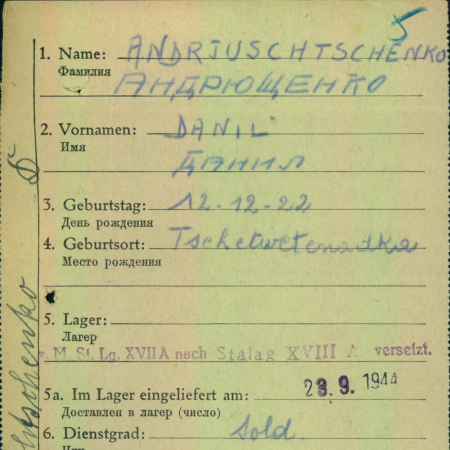 5
1. Name: ANDRJUSCHTSCHENKO
Фамилия АНДРЮЩЕНКО
2. Vornamen: DANIL
Имя ДАНИЛ
3. Geburtstag: 12-12-22
День рождения
4. Geburtsort:
Место рождения
5. Lager:
Лагер
M. St. Lg. XVIIA nach Stalag XVIII A versetzt.
5a. Im Lager eingeliefert am: 23. 9. 1944
Доставлен в лагер (число)
6. Dienstgrad: Sold.